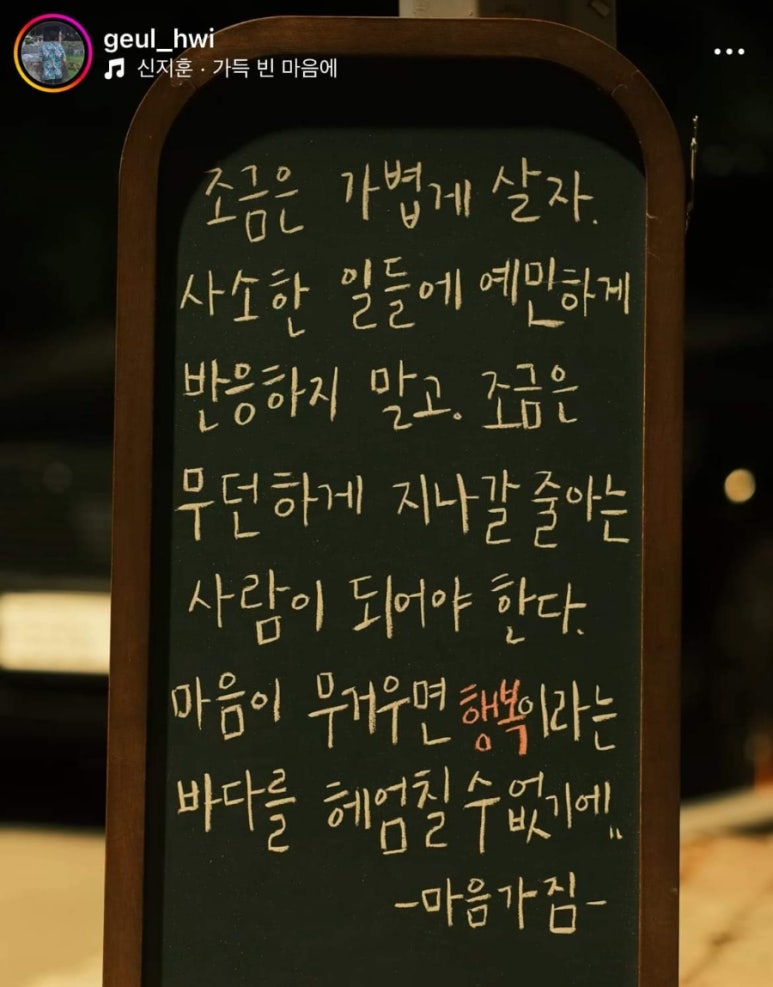 geul_hwi
신저훈 · 가득 빈 마음에
조금은 가볍게 살자.
사소한 일들에 예민하게
반응하지 말고. 조금은
무던하게 지나갈 줄아는
사람이 되어야 한다.
마음이 무거우면 행복이라는
바다를 헤엄칠 수 없기에..
-마음가짐-